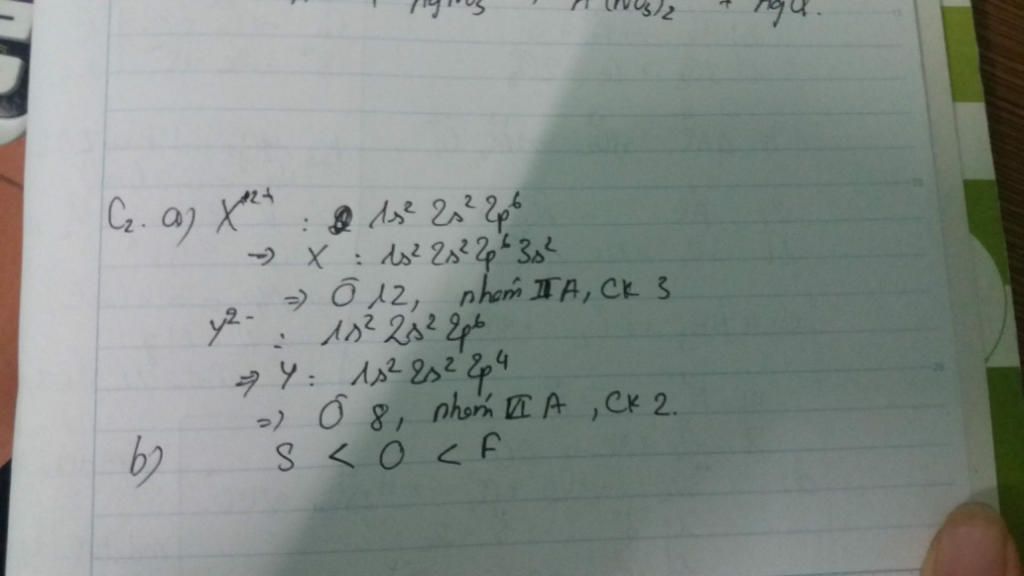 + AgNO3 A(NO3)2 + AgCl.
C2. a) X2+ : 1s² 2s² 2p⁶
→ X : 1s² 2s² 2p⁶ 3s²
⇒ Ô 12, nhóm IIA, CK 3
Y²⁻ : 1s² 2s² 2p⁶
⇒ Y : 1s² 2s² 2p⁴
⇒ Ô 8, nhóm VI A , CK 2.
b) S < O < F